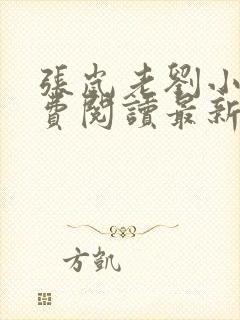 張嵐老劉小
費閱讀最新
方凱